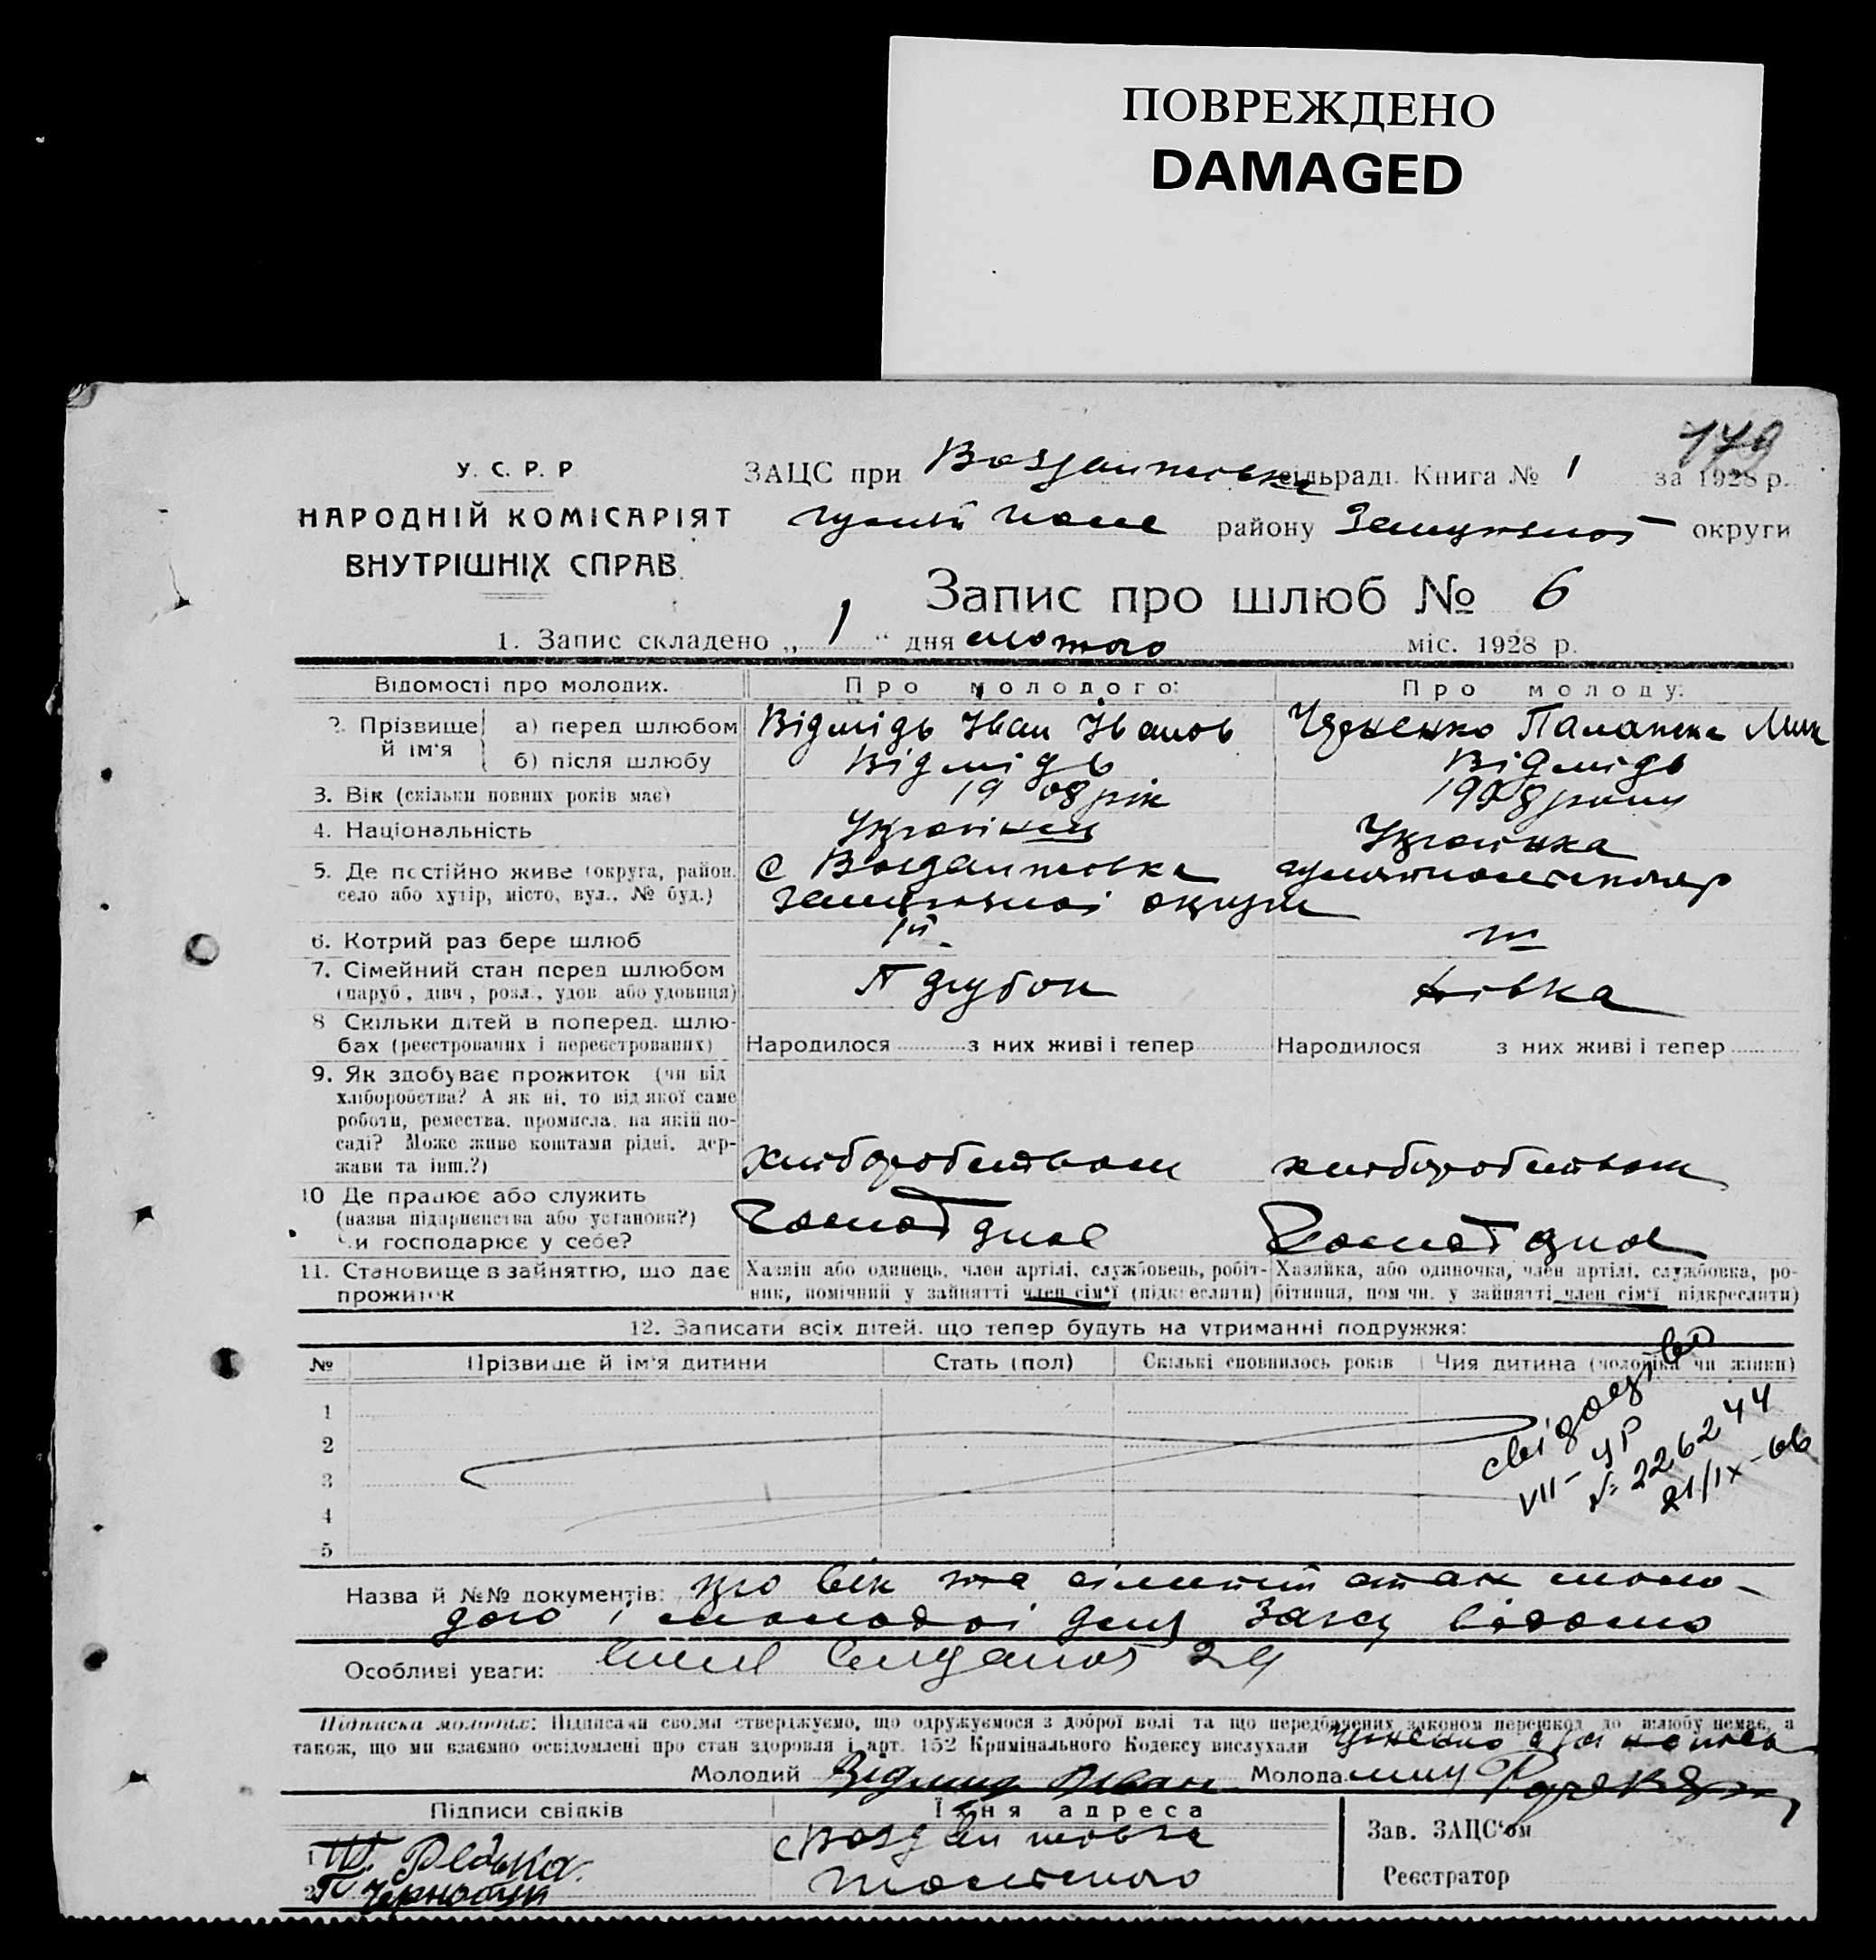 ПОВРЕЖДЕНО
DAMAGED
179
У. С. Р. Р.
НАРОДНІЙ КОМІСАРІЯТ
ВНУТРІШНІХ СПРАВ.
ЗАЦС при сільраді. Книга № 1 за 1928 р.
району округи
Запис про шлюб № 6
1. Запис складено „ 1 " дня лютого міс. 1928 р.
Відомості про молодих. Про молодого: Про молоду:
2. Прізвище й ім'я а) перед шлюбом Відмідь Іван Іванов
б) після шлюбу Відмідь Відмідь
3. Вік (скільки повних років має) 1908 рік 1908 року
4. Національність Українець Українка
5. Де постійно живе (округа, район.
село або хутір, місто, вул., № буд.) округи
6. Котрий раз бере шлюб 1й
7. Сімейний стан перед шлюбом
(паруб, дівч, розл., удов. або удовиця) Парубок Дівка
8 Скільки дітей в поперед. шлю-
бах (реєстрованих і нереєстрованих) Народилося з них живі і тепер Народилося з них живі і тепер
9. Як здобуває прожиток (чи від
хліборобства? А як ні, то від якої саме
роботи, ремества, промисла, на якій по-
саді? Може живе коштами рідні, дер-
жави та інш.?) хліборобством хліборобством
10 Де працює або служить
(назва підприємства або установи?)
Чи господарює у себе?
11. Становище в зайняттю, що дає
прожиток
Хазяін або одинець, член артілі, службовець, робіт-
ник, помічний у зайнятті член сім'ї (підкреслити)
Хазяйка, або одиночка, член артілі, службовка, ро-
бітниця, пом чн. у зайнятті член сім'ї підкреслити)
12. Записати всіх дітей, що тепер будуть на утриманні подружжя:
№ Прізвище й ім'я дитини Стать (пол) Скількі сповнилось років Чия дитина (чоловіка чи жінки)
1
2
3
4
5
свідоцтво
VII-УР
№ 226244
21/IX-66
Назва й №№ документів: про вік та сімейний стан моло-
дого і молодої для Загсу відомо
Особливі уваги:
Підписка молодих: Підписами своїми стверджуємо, що одружуємося з доброї волі та що передбачених законом перешкод до шлюбу немає, а
також, що ми взаємно освідомлені про стан здоровля і арт. 152 Кримінального Кодексу вислухали
Молодий Іван Молода
Підписи свідків Їхня адреса Зав. ЗАЦС'ом
1 Редька
2
Реєстратор